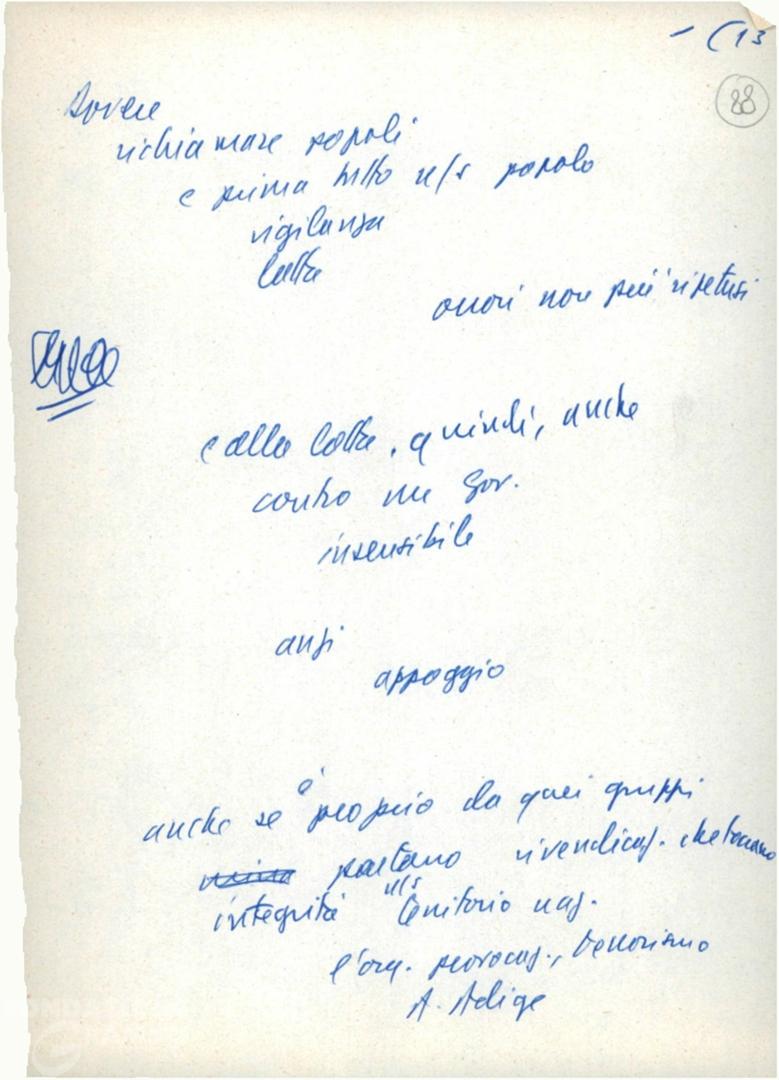 - (13
88
Dovere
richiamare popoli
e prima tutto n/s popolo
vigilanza
lotta
orrori non più ripetersi
e alla lotta, quindi, anche
contro un Gov.
insensibile
anzi
appoggio
anche se è proprio da quei gruppi
partano rivendicaz. che toccano
integrità n/s territorio naz.
l'org. provocaz., terrorismo
A. Adige